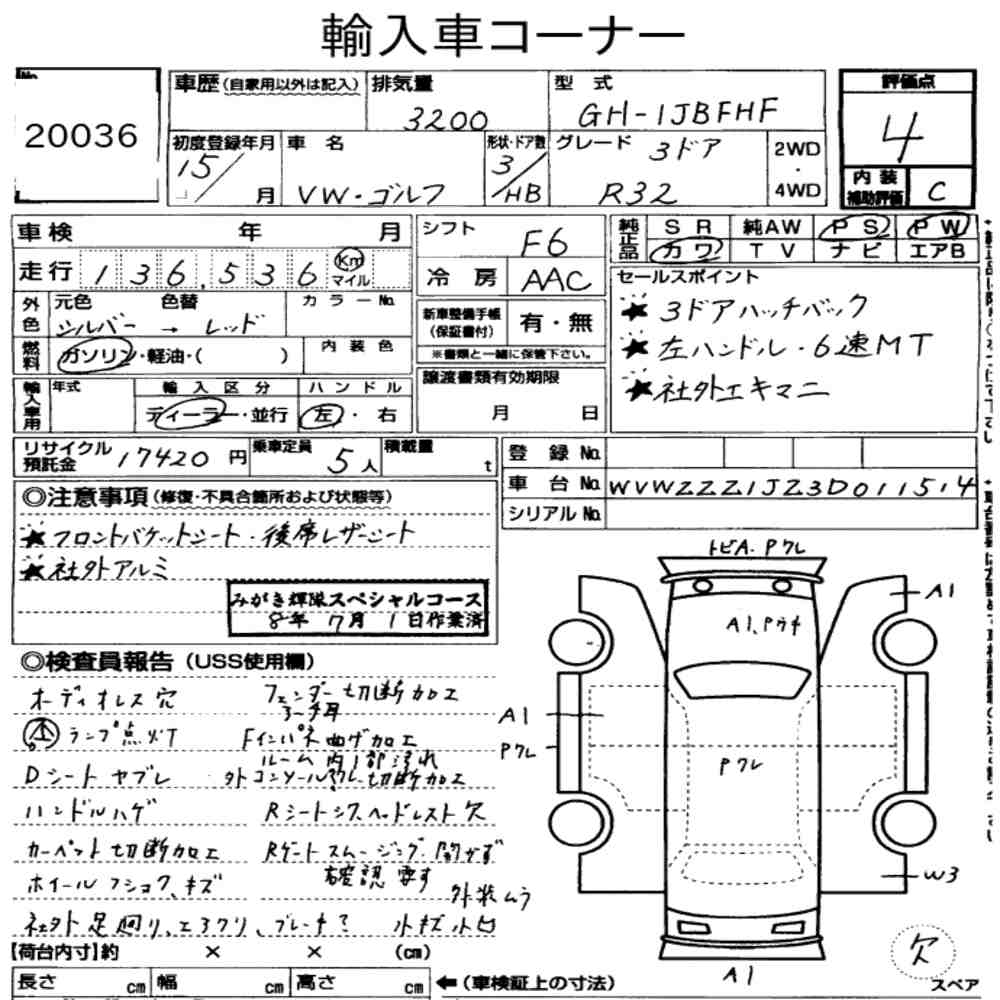 輸入車コーナー
No.
20036
車歴(自家用以外は記入)
排気量
3200
型 式
GH-1JBFHF
評価点
4
初度登録年月
15/
月
車 名
VW・ゴルフ
形状・ドア数
3/HB
グレード 3ドア
R32
2WD
・
4WD
内装
補助評価
C
車検 年 月
走行 136,536 Km
マイル
シフト
F6
冷房
AAC
純正品
SR 純AW PS PW
カワ TV ナビ エアB
外色
元色 色替 カラーNo.
シルバー → レッド
燃料
ガソリン・軽油・( )
内装色
新車整備手帳
(保証書付)
有・無
※書類と一緒に保管下さい。
セールスポイント
★3ドアハッチバック
★左ハンドル・6速MT
★社外エキマニ
輸入車用
年式
輸入区分
ディーラー・並行
ハンドル
左・右
譲渡書類有効期限
月 日
リサイクル
預託金
17420円
乗車定員
5人
積載量
t
登録No.
車台No. WVWZZZ1JZ3D011514
シリアルNo.
◎注意事項(修復・不具合箇所および状態等)
★フロントバケットシート・後席レザーシート
★社外アルミ
みがき輝隊スペシャルコース
8年 7月 1日作業済
◎検査員報告(USS使用欄)
オーディオレス穴
ランプ点灯
Dシートヤブレ
ハンドルハゲ
カーペット切断加工
ホイールフショク、キズ
社外足廻り、エアクリ、ブレーキ?
フェンダー切断加工
Fインパネ曲げ加工
ルーム内1部汚れ
外コンソールワレ切断加工
Rシートシワ ヘッドレスト欠
Rゲートスムージング 開かず
確認要す
外装ムラ
小キズ小凹
トビA・Pワレ
A1
A1、Pウキ
A1
Pワレ
Pワレ
W3
A1
欠
スペア
【荷台内寸】約 × × (cm)
長さ cm 幅 cm 高さ cm
←(車検証上の寸法)